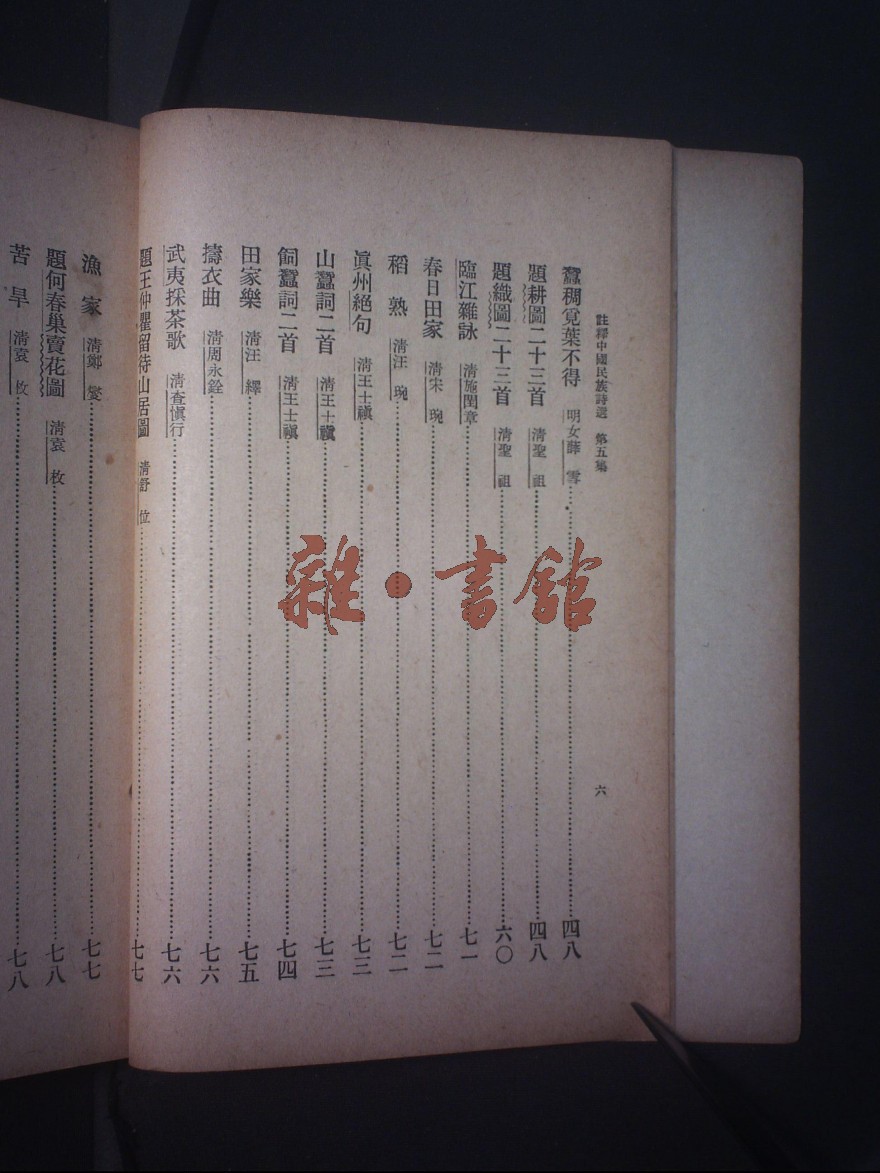 註釋中國民族詩選　第五集　六
蠶稠覓葉不得　明女薛　雪……四八
題耕圖二十三首　清聖　祖……四八
題織圖二十三首　清聖　祖……六〇
臨江雜詠　清施閏章……七一
春日田家　清宋　琬……七二
稻　熟　清汪　琬……七二
眞州絕句　清王士禛……七三
山蠶詞二首　清王士禛……七三
飼蠶詞二首　清王士禛……七四
田家樂　清汪　繹……七五
擣衣曲　清周永銓……七六
武夷採茶歌　清查愼行……七六
題王仲瞿留待山居圖　清舒　位……七七
漁　家　清鄭　燮……七七
題何春巢賣花圖　清袁　枚……七八
苦　旱　清袁　枚……七八
雜・書館